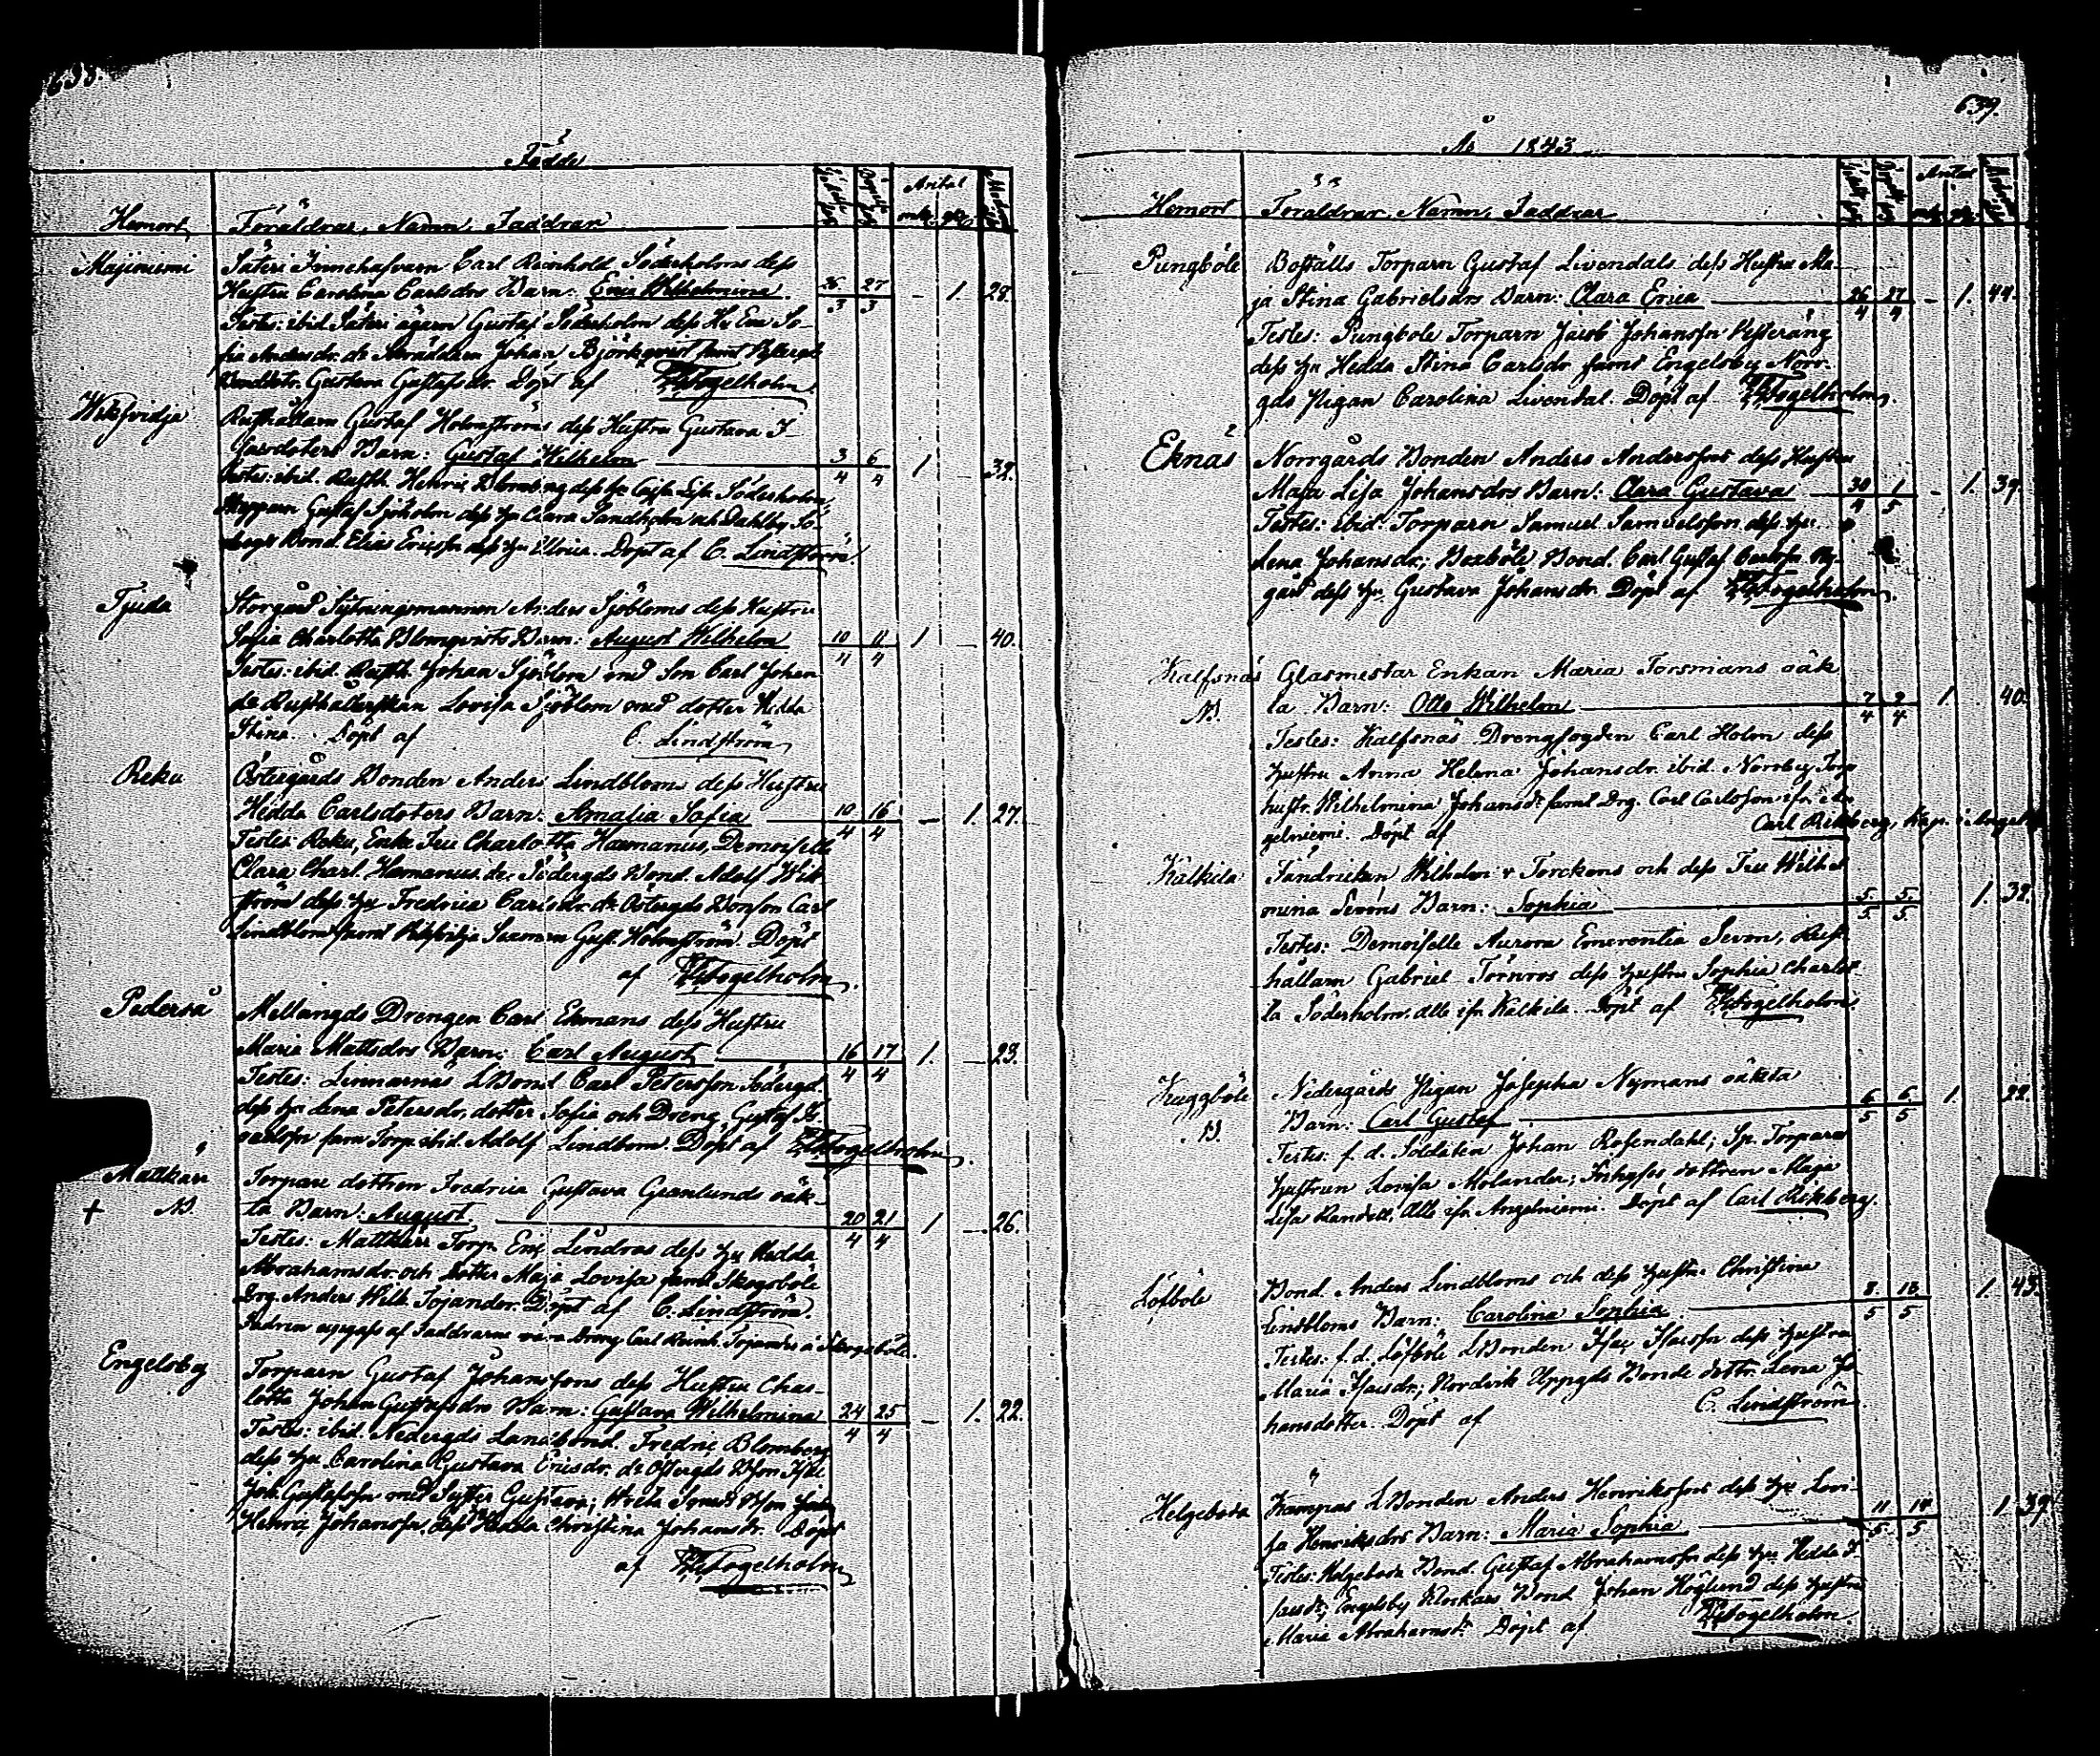 Födde
Hemort Föräldrar, Namn, Faddrar Antal
Majiniemi Säteri Innehafvarn Carl Reinhold Söderholms dess
Hustru Carolina Carlsdrs Barn: Erica Wilhelmina 26/3 27/3 - 1. 28.
Testes: ibid. Säteri ägarn Gustaf Söderholm dess Hu Eva So-
fia Andersdr. Johan Björkqvist samt
Gustava Gustafsdr. Döpt af Fogelholm.
Wiksvidja Rusthållarn Gustaf Holmströms dess Hustru Gustava I-
sacsdoters Barn: Gustaf Wilhelm 3/4 6/4 1 32.
Testes: ibid. Rusth. Henric Blomberg dess hu Cajsa Lisa Söderholm,
Skepparn Gustaf Sjöholm dess hu Clara Sandholm och Dahlby Sö-
dergs Bond. Elias Ericsson dess hu Ulrica. Döpt af C. Lindström.
Tjuda Storgård Sytningsmannen Anders Sjöbloms dess Hustru
Sofia Charlotta Blomqvists Barn: August Wilhelm 10/4 11/4 1 - 40.
Testes: ibid. Rusth. Johan Sjöblom med Son Carl Johan
Rusthållerskan Lovisa Sjöblom med dotter Hedda
Stina. Döpt af C. Lindström
Reku Östergårds Bonden Anders Lindbloms dess Hustru
Hedda Carlsdoters Barn: Amalia Sofia 10/4 16/4 - 1. 27.
Testes: Reku, Enke Fru Charlotta Hæmanius, Demoiselle
Clara Charl. Hæmanius, Södergds Bond. Adolf Wik-
ström dess hu Fredrica Carlsdr. Östergds Bonson Carl
Lindblom samt Wiksvidja Gust. Holmström. Döpt
af Fogelholm.
Pederså Mellangds Drengen Carl Ekmans dess Hustru
Maria Mattsdrs Barn: Carl August 16/4 17/4 1 - 23.
Testes: Linnarnäs LBond Carl Petersson Södergd
dess hu Lena Petersdr, dotter Sofia och Dreng Gustaf
Torp. ibid. Adolf Lindbom. Döpt af Fogelholm.
Mattkärr Torpare dottren Fredrica Gustava Granlunds oäk-
+ N. ta Barn: August 20/4 21/4 1 - 26.
Testes: Mattkärr Torp. Eric Lindroos dess hu Hedda
Abrahamsdr. och dotter Maja Lovisa samt Skogsböle
Drg. Anders Wilh. Tojander. Döpt af C. Lindström.
Fadren uppgafs af Faddrarne vara Dreng Carl Reinh. Tojander i Skogsböle.
Engelsby Torparn Gustaf Johanssons dess Hustru Char-
lotta Johan Gustafsdrs Barn: Gustava Wilhelmina 24/4 25/4 - 1. 22.
Testes: ibid. Nedergds Landbond. Fredric Blomberg
dess hu Carolina Gustava Ericsdr. Östergds
Joh. Gustafsson med Syster Gustava;
Henric Johansson, dess Hedda Christina Johansdr. Döpt
af Fogelholm
639.
År 1843
Hemort Föräldrar, Namn, Faddrar Antal
Pungböle Boställs Torparn Gustaf Livendals dess Hustru Ma-
ja Stina Gabrielsdrs Barn: Clara Erica 26/4 27/4 - 1. 44.
Testes: Pungböle Torparn Jacob Johansson Westeräng
dess hu Hedda Stina Carlsdr samt Engelsby Norr-
gds Pigan Carolina Livendal. Döpt af Fogelholm.
Eknäs Norrgårds Bonden Anders Anderssons dess Hustru
Maja Lisa Johansdrs Barn: Clara Gustava 30/4 1/5 - 1. 39.
Testes: ibid. Torparn Samuel Samuelsson dess hu
Lena Johansdr; Boxböle Bond. Carl Gustaf Carlsson Ny-
gård dess hu Gustava Johansdr. Döpt af Fogelholm.
Kalfsnäs Glasmestar Enkan Maria Forsmans oäk
N. ta Barn: Otto Wilhelm 7/4 9/4 1 40.
Testes: Kalfsnäs Drengfogden Carl Holm dess
hustru Anna Helena Johansdr. ibid. Norrby Torp
hustr. Wilhelmina Johansdr samt Drg. Carl Carlsson ifr. An-
gelniemi. Döpt af Carl Rikberg, Kap. i Angel
Kälkilä Fändricken Wilhelm v. Torckens och dess Fru Wilhel
mina Serons Barn: Sophia 5/5 5/5 1. 32.
Testes: Demoiselle Aurora Emerentia Seron, Rust
hållarn Gabriel Törnroos dess hustru Sophia Charlot
ta Söderholm. alla ifr. Kälkilä. Döpt af Fogelholm.
Kuggböle Nedergårds Pigan Josepha Nymans oäkta
N. Barn: Carl Gustaf 6/5 6/5 1. 22.
Testes: f. d. Soldaten Johan Rosendahl; Sp. Torpare
hustrun Lovisa Molander; Inhyses dottren Maja
Lisa Randell, Alla ifr. Angelniemi. Döpt af Carl Rikberg.
Löfböle Bond. Anders Lindbloms och dess hustru Christina
Lindbloms Barn: Carolina Sophia 8/5 13/5 1. 43.
Testes: f. d. Löfböle LBonden Isac Isacsson dess hustru
Maria Isacsdr; Nordvik Uppgds Bonde dottr. Lena Jo-
hansdotter. Döpt af C. Lindström
Helgeboda Kampas LBonden Anders Henrikssons dess hu Lovi-
sa Henriksdrs Barn: Maria Sophia 11/5 14/5 1 39
Testes: Helgeboda Bond. Gustaf Abrahamsson dess hu Hedda I-
sacsdr; Engelsby Klockars Bond Johan Höglund dess hustru
Maria Abrahamsdr. Döpt af Fogelholm.